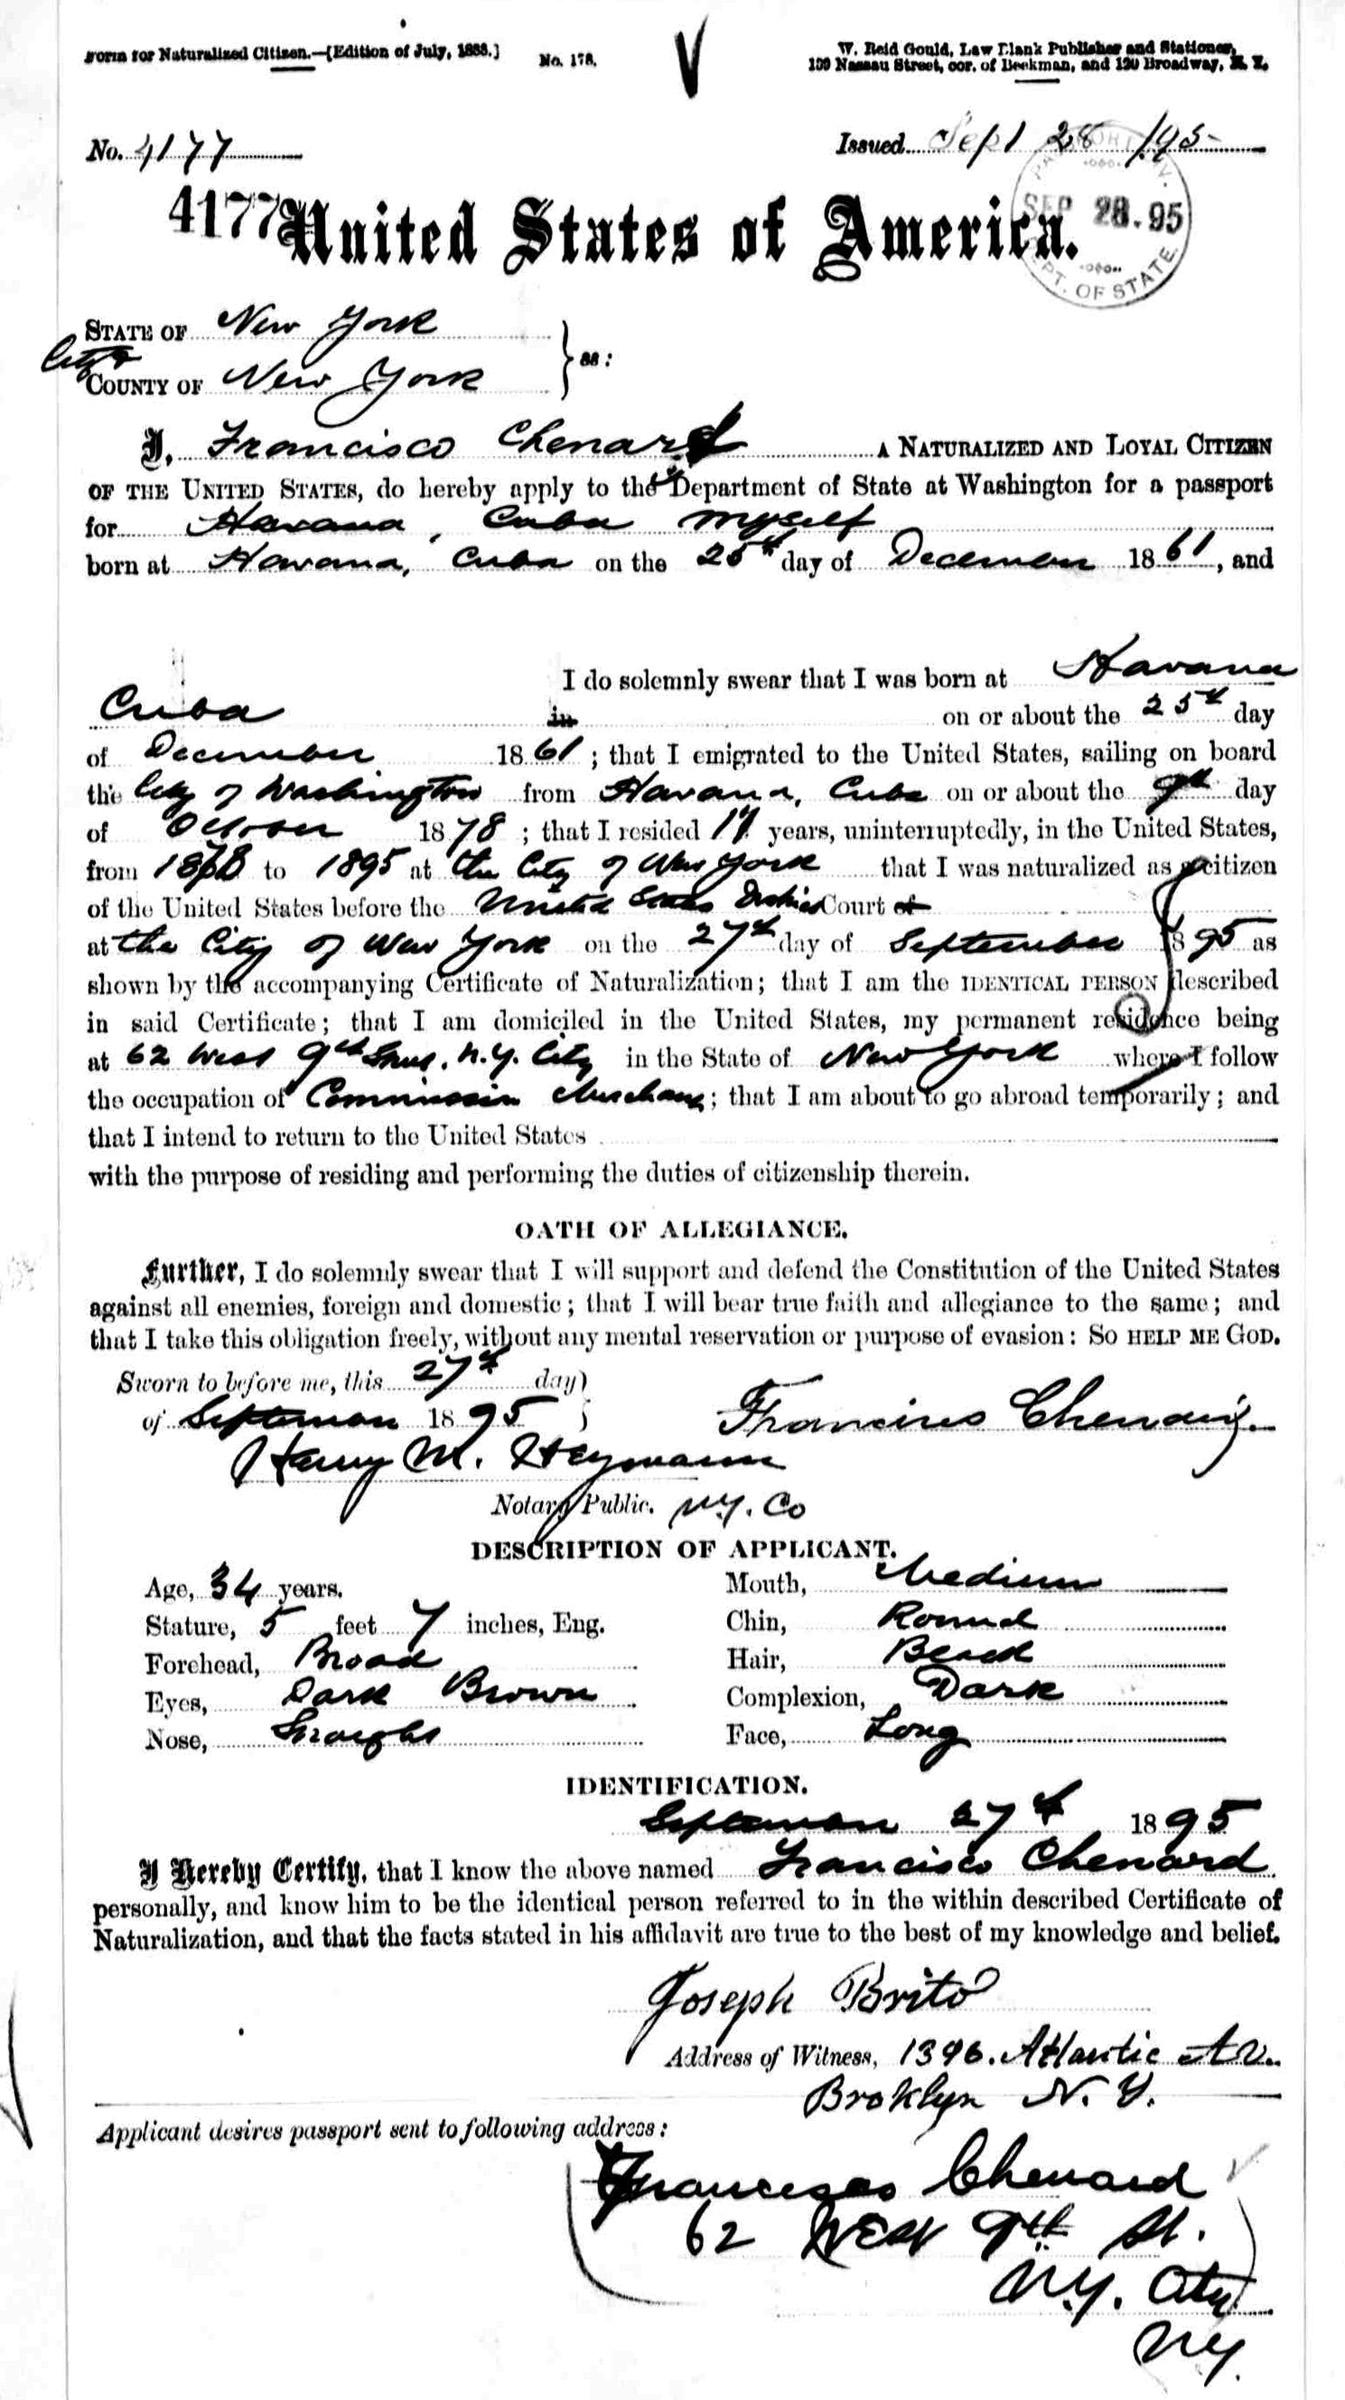 Form for Naturalized Citizen.—[Edition of July, 1888.] No. 178. W. Reid Gould, Law Blank Publisher and Stationer,
139 Nassau Street, cor. of Beekman, and 120 Broadway, N. Y.
No. 4177 Issued Sept 28 /95
4177 United States of America.
PASSPORT DIV.
SEP 28.95
DEPT. OF STATE.
STATE OF New York
City &
COUNTY OF New York } ss:
I, Francisco Chenard A NATURALIZED AND LOYAL CITIZEN
OF THE UNITED STATES, do hereby apply to the Department of State at Washington for a passport
for Havana, Cuba myself
born at Havana, Cuba on the 25th day of December 1861, and
I do solemnly swear that I was born at Havana
Cuba in on or about the 25th day
of December 1861; that I emigrated to the United States, sailing on board
the City of Washington from Havana, Cuba on or about the 9th day
of October 1878; that I resided 17 years, uninterruptedly, in the United States,
from 1878 to 1895 at the City of New York that I was naturalized as a citizen
of the United States before the United States District Court of
at the City of New York on the 27th day of September 1895 as
shown by the accompanying Certificate of Naturalization; that I am the IDENTICAL PERSON described
in said Certificate; that I am domiciled in the United States, my permanent residence being
at 62 West 9th Street, N.Y. City in the State of New York where I follow
the occupation of Commission Merchant; that I am about to go abroad temporarily; and
that I intend to return to the United States
with the purpose of residing and performing the duties of citizenship therein.
OATH OF ALLEGIANCE.
Further, I do solemnly swear that I will support and defend the Constitution of the United States
against all enemies, foreign and domestic; that I will bear true faith and allegiance to the same; and
that I take this obligation freely, without any mental reservation or purpose of evasion: SO HELP ME GOD.
Sworn to before me, this 27th day
of September 1895 Francisco Chenard
Harry M. Heymann
Notary Public. N.Y. Co
DESCRIPTION OF APPLICANT.
Age, 34 years. Mouth, Medium
Stature, 5 feet 7 inches, Eng. Chin, Round
Forehead, Broad Hair, Black
Eyes, Dark Brown Complexion, Dark
Nose, Straight Face, Long
IDENTIFICATION.
September 27th 1895
I Hereby Certify, that I know the above named Francisco Chenard
personally, and know him to be the identical person referred to in the within described Certificate of
Naturalization, and that the facts stated in his affidavit are true to the best of my knowledge and belief.
Joseph Brito
Address of Witness, 1396. Atlantic Av.
Broklyn N. Y.
Applicant desires passport sent to following address:
Francisco Chenard
62 West 9th St.
N.Y. City
NY.